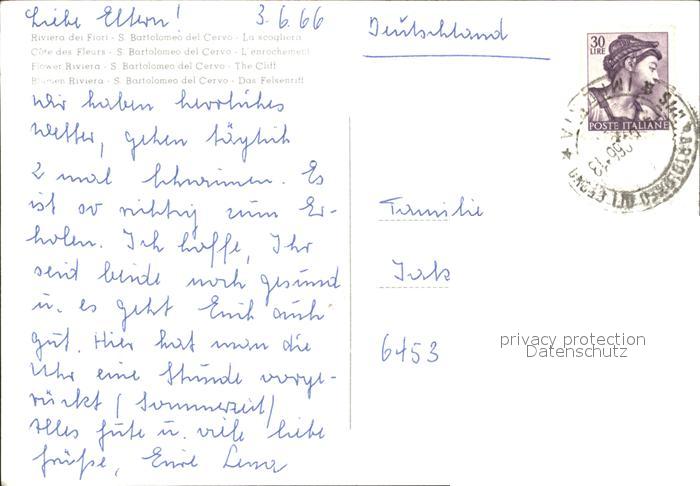 Liebe Eltern! 3.6.66
Riviera dei Fiori - S. Bartolomeo del Cervo - La scogliera
Côte des Fleurs - S. Bartolomeo del Cervo - L'enrochement
Flower Riviera - S. Bartolomeo del Cervo - The Cliff
Blumen Riviera - S. Bartolomeo del Cervo - Das Felsenriff
Wir haben herrliches
Wetter, gehen täglich
2 mal schwimmen. Es
ist so richtig zum Er-
holen. Ich hoffe, Ihr
seid beide noch gesund
u. es geht Euch auch
gut. Hier hat man die
Uhr eine Stunde vorge-
rückt (Sommerzeit)
Alles Gute u. viele liebe
Grüße, Eure Lena
Deutschland
30
LIRE
POSTE ITALIANE
Familie
6453
privacy protection
Datenschutz